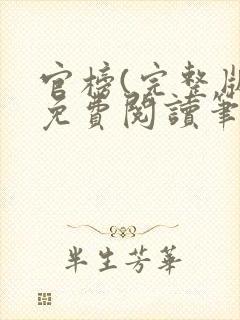 官榜(完整版
免費閱讀筆
半生芳華